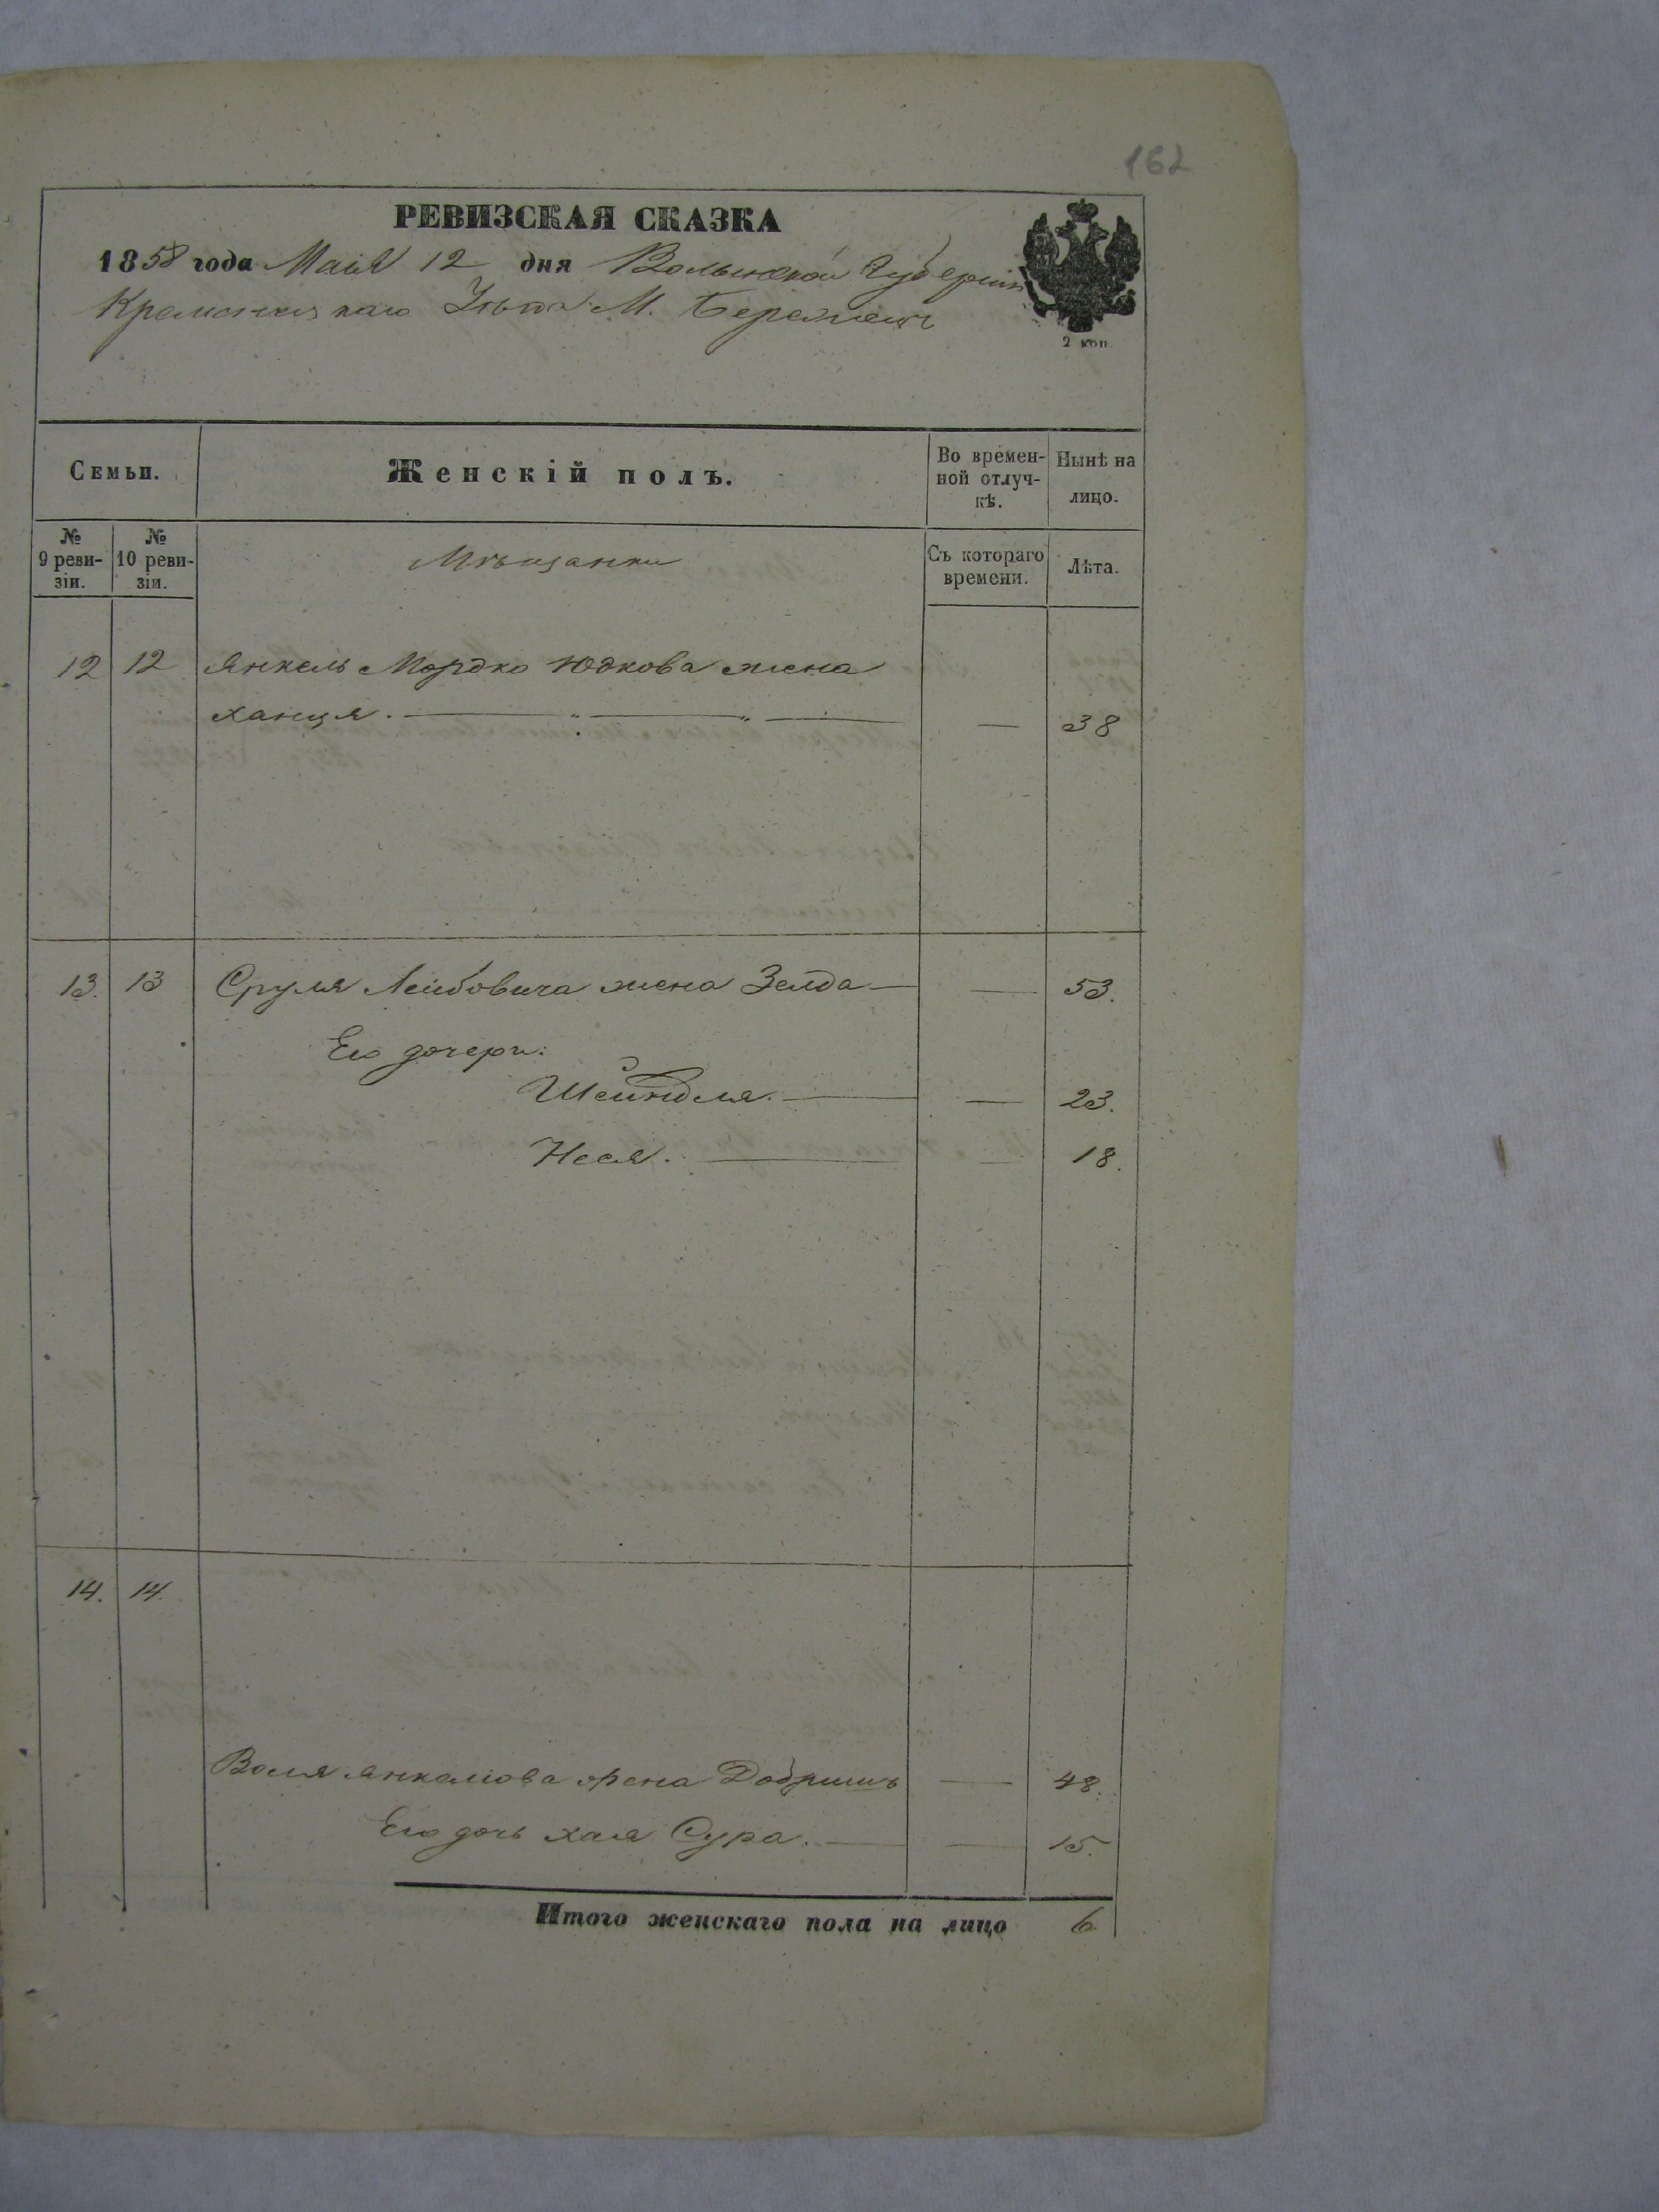 162
РЕВИЗСКАЯ СКАЗКА
1858 года Маія 12 дня Волынской Губерніи
Кременецкаго Уѣзда М. Бережецъ
2 коп.
Семьи. Женскій полъ. Во времен-ной отлуч-кѣ. Нынѣ на лицо.
№ 9 реви-зіи. № 10 реви-зіи. Мѣщанки Съ котораго времени. Лѣта.
12 12 Янкель Мордко Юдкова жена
Ханця. — 38
13. 13 Сруля Лейбовича жена Зелда — 53.
Его дочери:
Шейндля. — 23.
Неся. — 18.
14. 14.
Воля Янкеліова жена Добришъ — 48.
Его дочь Хая Сура. — 15.
Итого женскаго пола на лицо 6